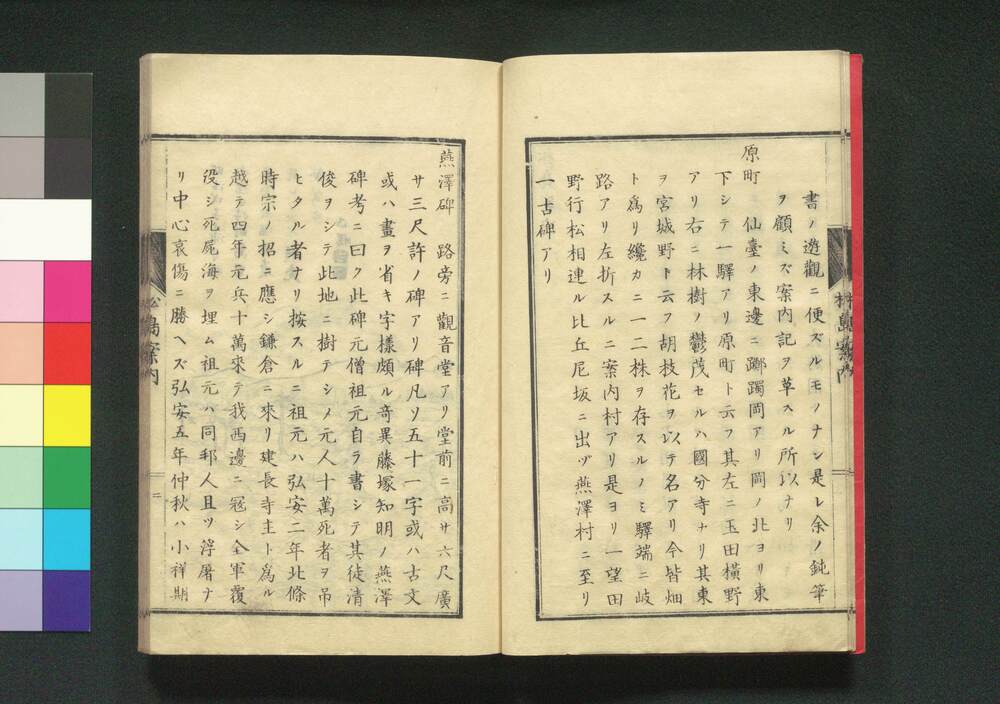 書ノ遊觀ニ便ズルモノナシ是レ余ノ鈍筆
ヲ顧ミズ案内記ヲ草スル所以ナリ
原町　仙臺ノ東邊ニ躑躅岡アリ岡ノ北ヨリ東
下シテ一驛アリ原町ト云フ其左ニ玉田横野
アリ右ニ林樹ノ鬱茂セルハ國分寺ナリ其東
ヲ宮城野ト云フ胡枝花ヲ以テ名アリ今皆畑
ト爲リ纔カニ一二株ヲ存スルノミ驛端ニ岐
路アリ左折スルニ案内村アリ是ヨリ一望田
野行松相連ル比丘尼坂ニ出ヅ燕澤村ニ至リ
一古碑アリ
松島案内
燕澤碑　路旁ニ觀音堂アリ堂前ニ高サ六尺廣
サ三尺許ノ碑アリ碑凡ソ五十一字或ハ古文
或ハ畫ヲ省キ字樣頗ル竒異藤塚知明ノ燕澤
碑考ニ曰ク此碑元僧祖元自ラ書シテ其徒清
俊ヲシテ此地ニ樹テシメ元人十萬死者ヲ吊
ヒタル者ナリ按スルニ祖元ハ弘安二年北條
時宗ノ招ニ應シ鎌倉ニ來リ建長寺主ト爲ル
越テ四年元兵十萬來テ我西邊ニ寇シ全軍覆
役シ死屍海ヲ埋ム祖元ハ同邦人且ツ浮屠ナ
リ中心哀傷ニ勝ヘズ弘安五年仲秋ハ小祥期
松島案内
二